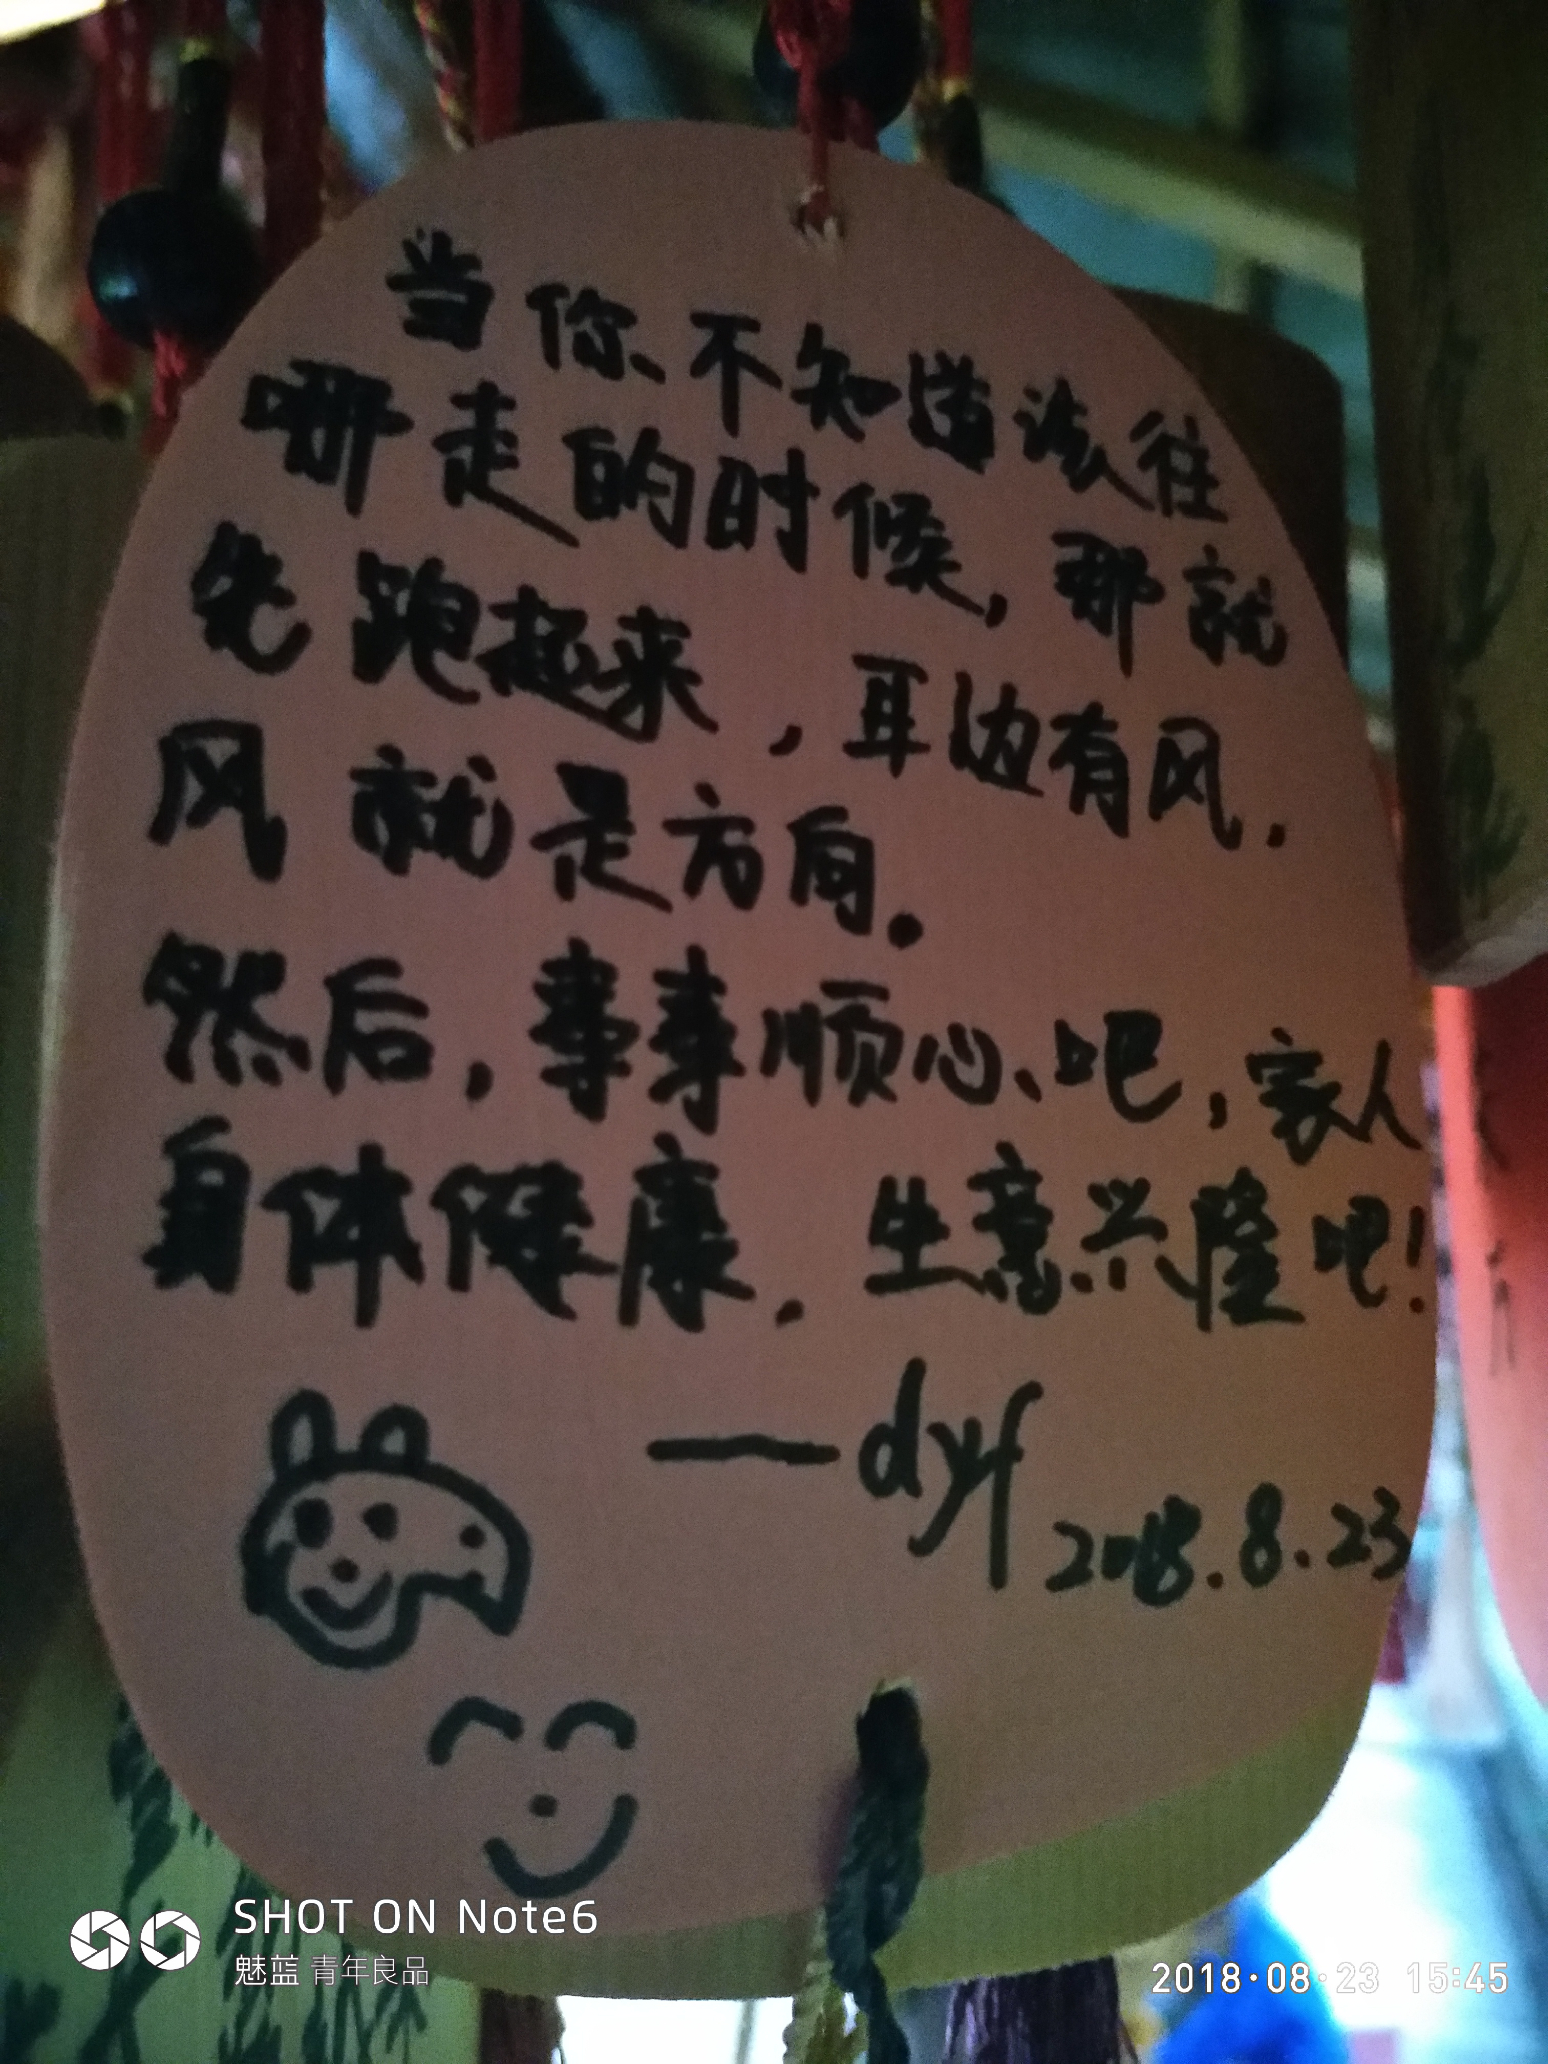 当你不知道该往
哪走的时候，那就
先跑起来，耳边有风.
风就是方向.
然后，事事顺心吧，家人
身体健康. 生意兴隆吧!
—dyf
2018.8.23
SHOT ON Note6
魅蓝 青年良品
2018·08·23 15:45